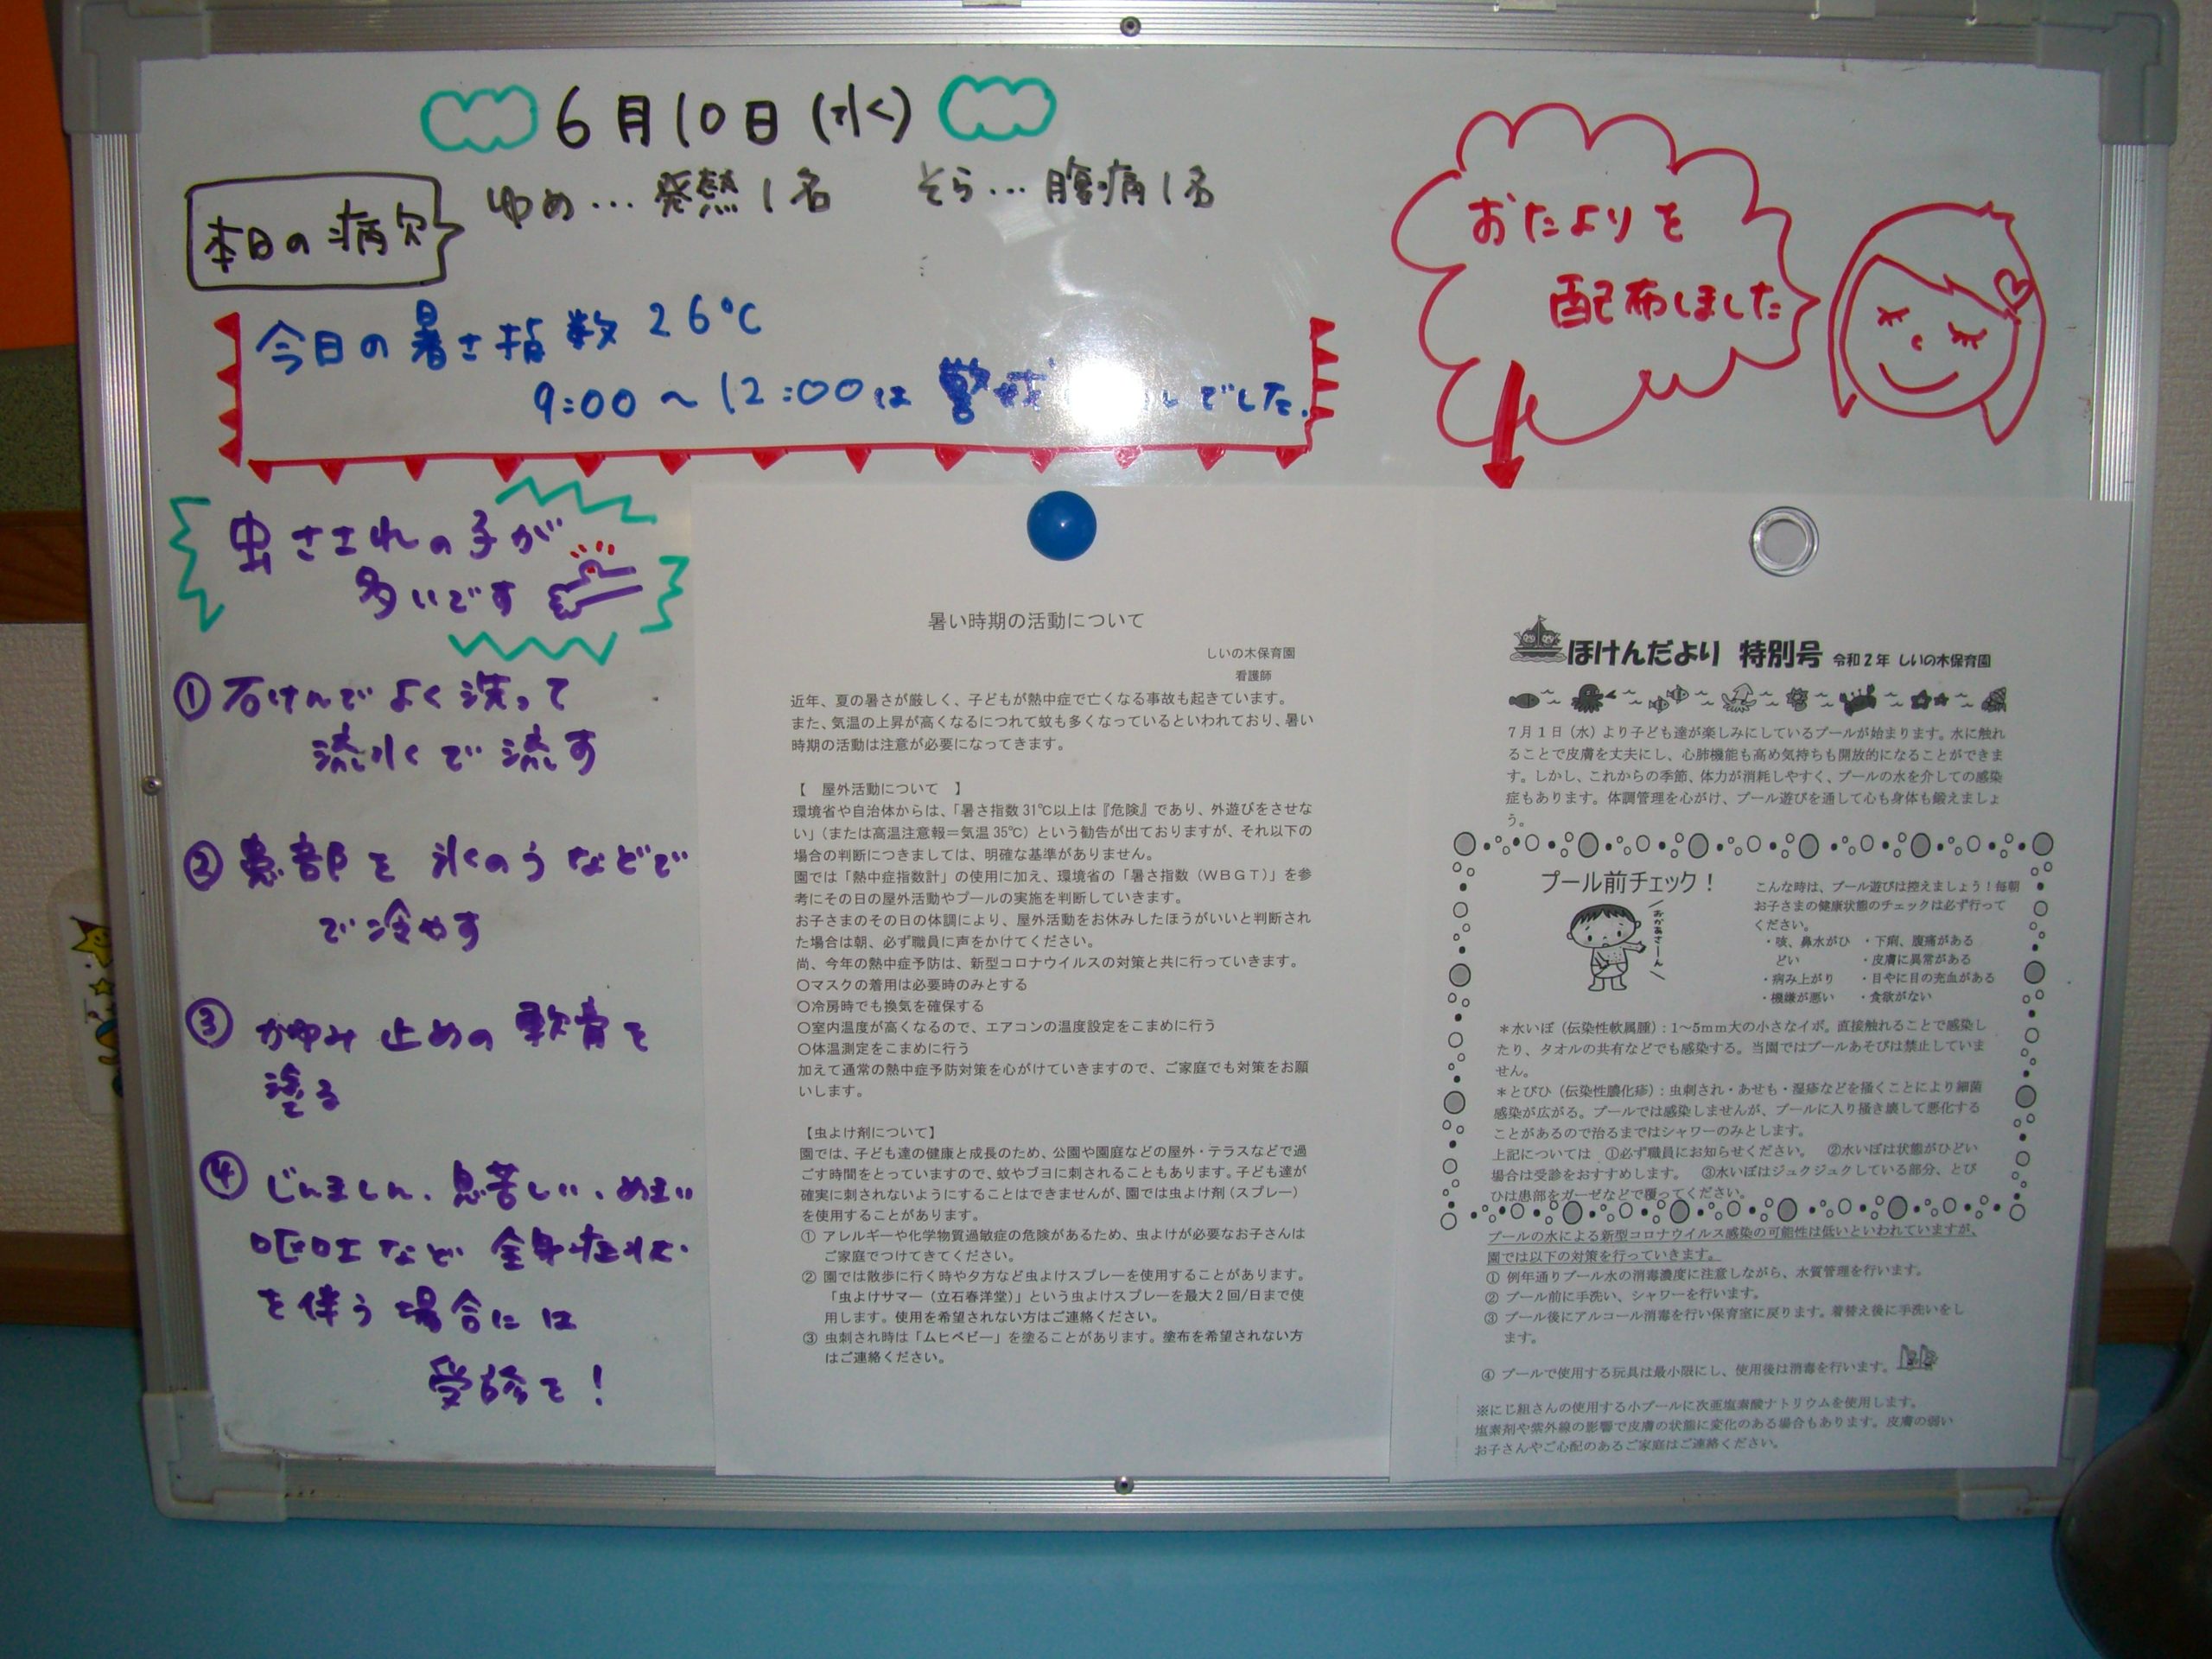 6月10日(水)
本日の病欠
ゆめ…発熱1名 そら…腹痛1名
今日の暑さ指数 26℃
9:00～12:00は 警戒 でした.
おたよりを
配布しました
虫さされの子が
多いです
① 石けんでよく洗って
流水で流す
② 患部を氷のうなどで
で冷やす
③ かゆみ止めの軟膏を
塗る
④ じんましん、息苦しい、めまい
嘔吐など全身症状
を伴う場合には
受診を!
暑い時期の活動について
しいの木保育園
看護師
近年、夏の暑さが厳しく、子どもが熱中症で亡くなる事故も起きています。
また、気温の上昇が高くなるにつれて蚊も多くなっているといわれており、暑い
時期の活動は注意が必要になってきます。
【 屋外活動について 】
環境省や自治体からは、「暑さ指数31℃以上は『危険』であり、外遊びをさせな
い」（または高温注意報＝気温35℃）という勧告が出ておりますが、それ以下の
場合の判断につきましては、明確な基準がありません。
園では「熱中症指数計」の使用に加え、環境省の「暑さ指数（WBGT）」を参
考にその日の屋外活動やプールの実施を判断していきます。
お子さまのその日の体調により、屋外活動をお休みしたほうがいいと判断され
た場合は朝、必ず職員に声をかけてください。
尚、今年の熱中症予防は、新型コロナウイルスの対策と共に行っていきます。
○マスクの着用は必要時のみとする
○冷房時でも換気を確保する
○室内温度が高くなるので、エアコンの温度設定をこまめに行う
○体温測定をこまめに行う
加えて通常の熱中症予防対策を心がけていきますので、ご家庭でも対策をお願
いします。
【虫よけ剤について】
園では、子ども達の健康と成長のため、公園や園庭などの屋外・テラスなどで過
ごす時間をとっていますので、蚊やブヨに刺されることもあります。子ども達が
確実に刺されないようにすることはできませんが、園では虫よけ剤（スプレー）
を使用することがあります。
① アレルギーや化学物質過敏症の危険があるため、虫よけが必要なお子さんは
ご家庭でつけてきてください。
② 園では散歩に行く時や夕方など虫よけスプレーを使用することがあります。
「虫よけサマー（立石春洋堂）」という虫よけスプレーを最大2回/日まで使
用します。使用を希望されない方はご連絡ください。
③ 虫刺され時は「ムヒベビー」を塗ることがあります。塗布を希望されない方
はご連絡ください。
ほけんだより 特別号 令和2年 しいの木保育園
7月1日（水）より子ども達が楽しみにしているプールが始まります。水に触れ
ることで皮膚を丈夫にし、心肺機能も高め気持ちも開放的になることができま
す。しかし、これからの季節、体力が消耗しやすく、プールの水を介しての感染
症もあります。体調管理を心がけ、プール遊びを通して心も身体も鍛えましょ
う。
プール前チェック！
おかあさーん
こんな時は、プール遊びは控えましょう！毎朝
お子さまの健康状態のチェックは必ず行って
ください。
・咳、鼻水がひ ・下痢、腹痛がある
どい ・皮膚に異常がある
・病み上がり ・目やに目の充血がある
・機嫌が悪い ・食欲がない
＊水いぼ（伝染性軟属腫）：1～5mm大の小さなイボ。直接触れることで感染し
たり、タオルの共有などでも感染する。当園ではプールあそびは禁止していま
せん。
＊とびひ（伝染性膿化疹）：虫刺され・あせも・湿疹などを掻くことにより細菌
感染が広がる。プールでは感染しませんが、プールに入り掻き壊して悪化する
ことがあるので治るまではシャワーのみとします。
上記については ①必ず職員にお知らせください。 ②水いぼは状態がひどい
場合は受診をおすすめします。 ③水いぼはジュクジュクしている部分、とび
ひは患部をガーゼなどで覆ってください。
プールの水による新型コロナウイルス感染の可能性は低いといわれていますが、
園では以下の対策を行っていきます。
① 例年通りプール水の消毒濃度に注意しながら、水質管理を行います。
② プール前に手洗い、シャワーを行います。
③ プール後にアルコール消毒を行い保育室に戻ります。着替え後に手洗いをし
ます。
④ プールで使用する玩具は最小限にし、使用後は消毒を行います。
※にじ組さんの使用する小プールに次亜塩素酸ナトリウムを使用します。
塩素剤や紫外線の影響で皮膚の状態に変化のある場合もあります。皮膚の弱い
お子さんやご心配のあるご家庭はご連絡ください。